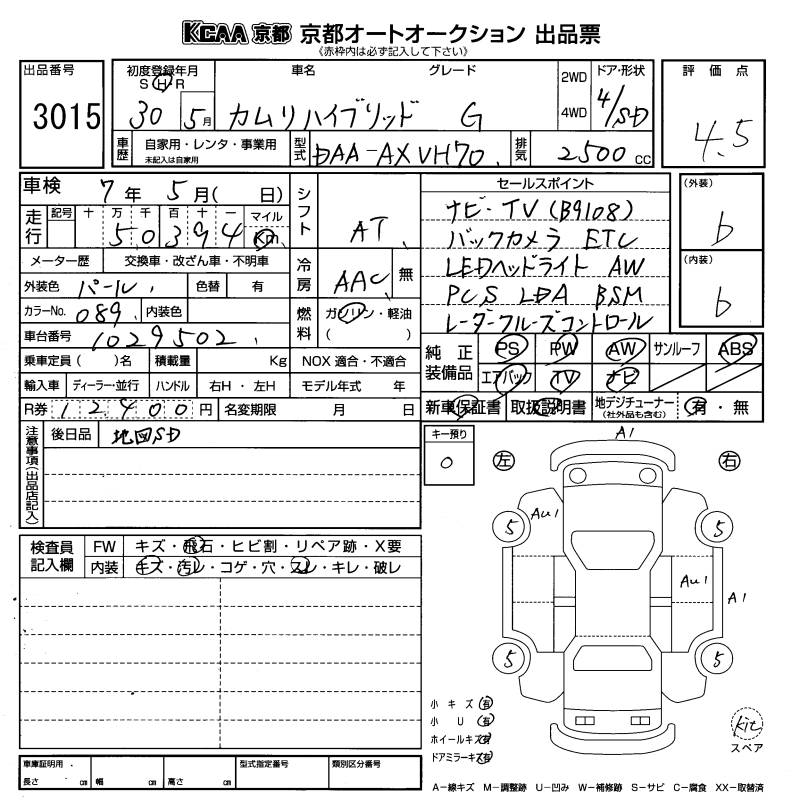 KCAA 京都 京都オートオークション 出品票
《赤枠内は必ず記入して下さい》
出品番号
3015
初度登録年月
S H R
30 5月
車名 グレード
カムリハイブリッド G
2WD
4WD
ドア・形状
4/SD
評価点
4.5
車歴
自家用・レンタ・事業用
未記入は自家用
型式
DAA-AXVH70
排気
2500 cc
車検 7年 5月( 日)
走行
記号 十 万 千 百 十 一 マイル
50394 Km
メーター歴 交換車・改ざん車・不明車
外装色 パール 色替 有
カラーNo. 089 内装色
車台番号 1029502
乗車定員( )名 積載量 Kg
輸入車 ディーラー・並行 ハンドル 右H・左H
R券 12400円 名変期限 月 日
シフト AT
冷房 AAC 無
燃料
ガソリン・軽油
( )
NOX 適合・不適合
モデル年式 年
セールスポイント
ナビ・TV(B9108)
バックカメラ ETC
LEDヘッドライト AW
PCS LDA BSM
レーダークルーズコントロール
(外装)
b
(内装)
b
純正装備品
PS PW AW サンルーフ ABS
エアバック TV ナビ
新車保証書 取扱説明書
地デジチューナー
(社外品も含む)
有・無
注意事項(出品店記入)
後日品 地図SD
キー預り
0
検査員記入欄
FW キズ・飛石・ヒビ割・リペア跡・X要
内装 キズ・汚レ・コゲ・穴・スレ・キレ・破レ
A1
左 右
5 AU1 5
AU1 A1
5 5
小キズ 有
小U 有
ホイールキズ 有
ドアミラーキズ 有
kit
スペア
車庫証明用
長さ cm 幅 cm 高さ cm
型式指定番号 類別区分番号
A−線キズ M−調整跡 U−凹み W−補修跡 S−サビ C−腐食 XX−取替済